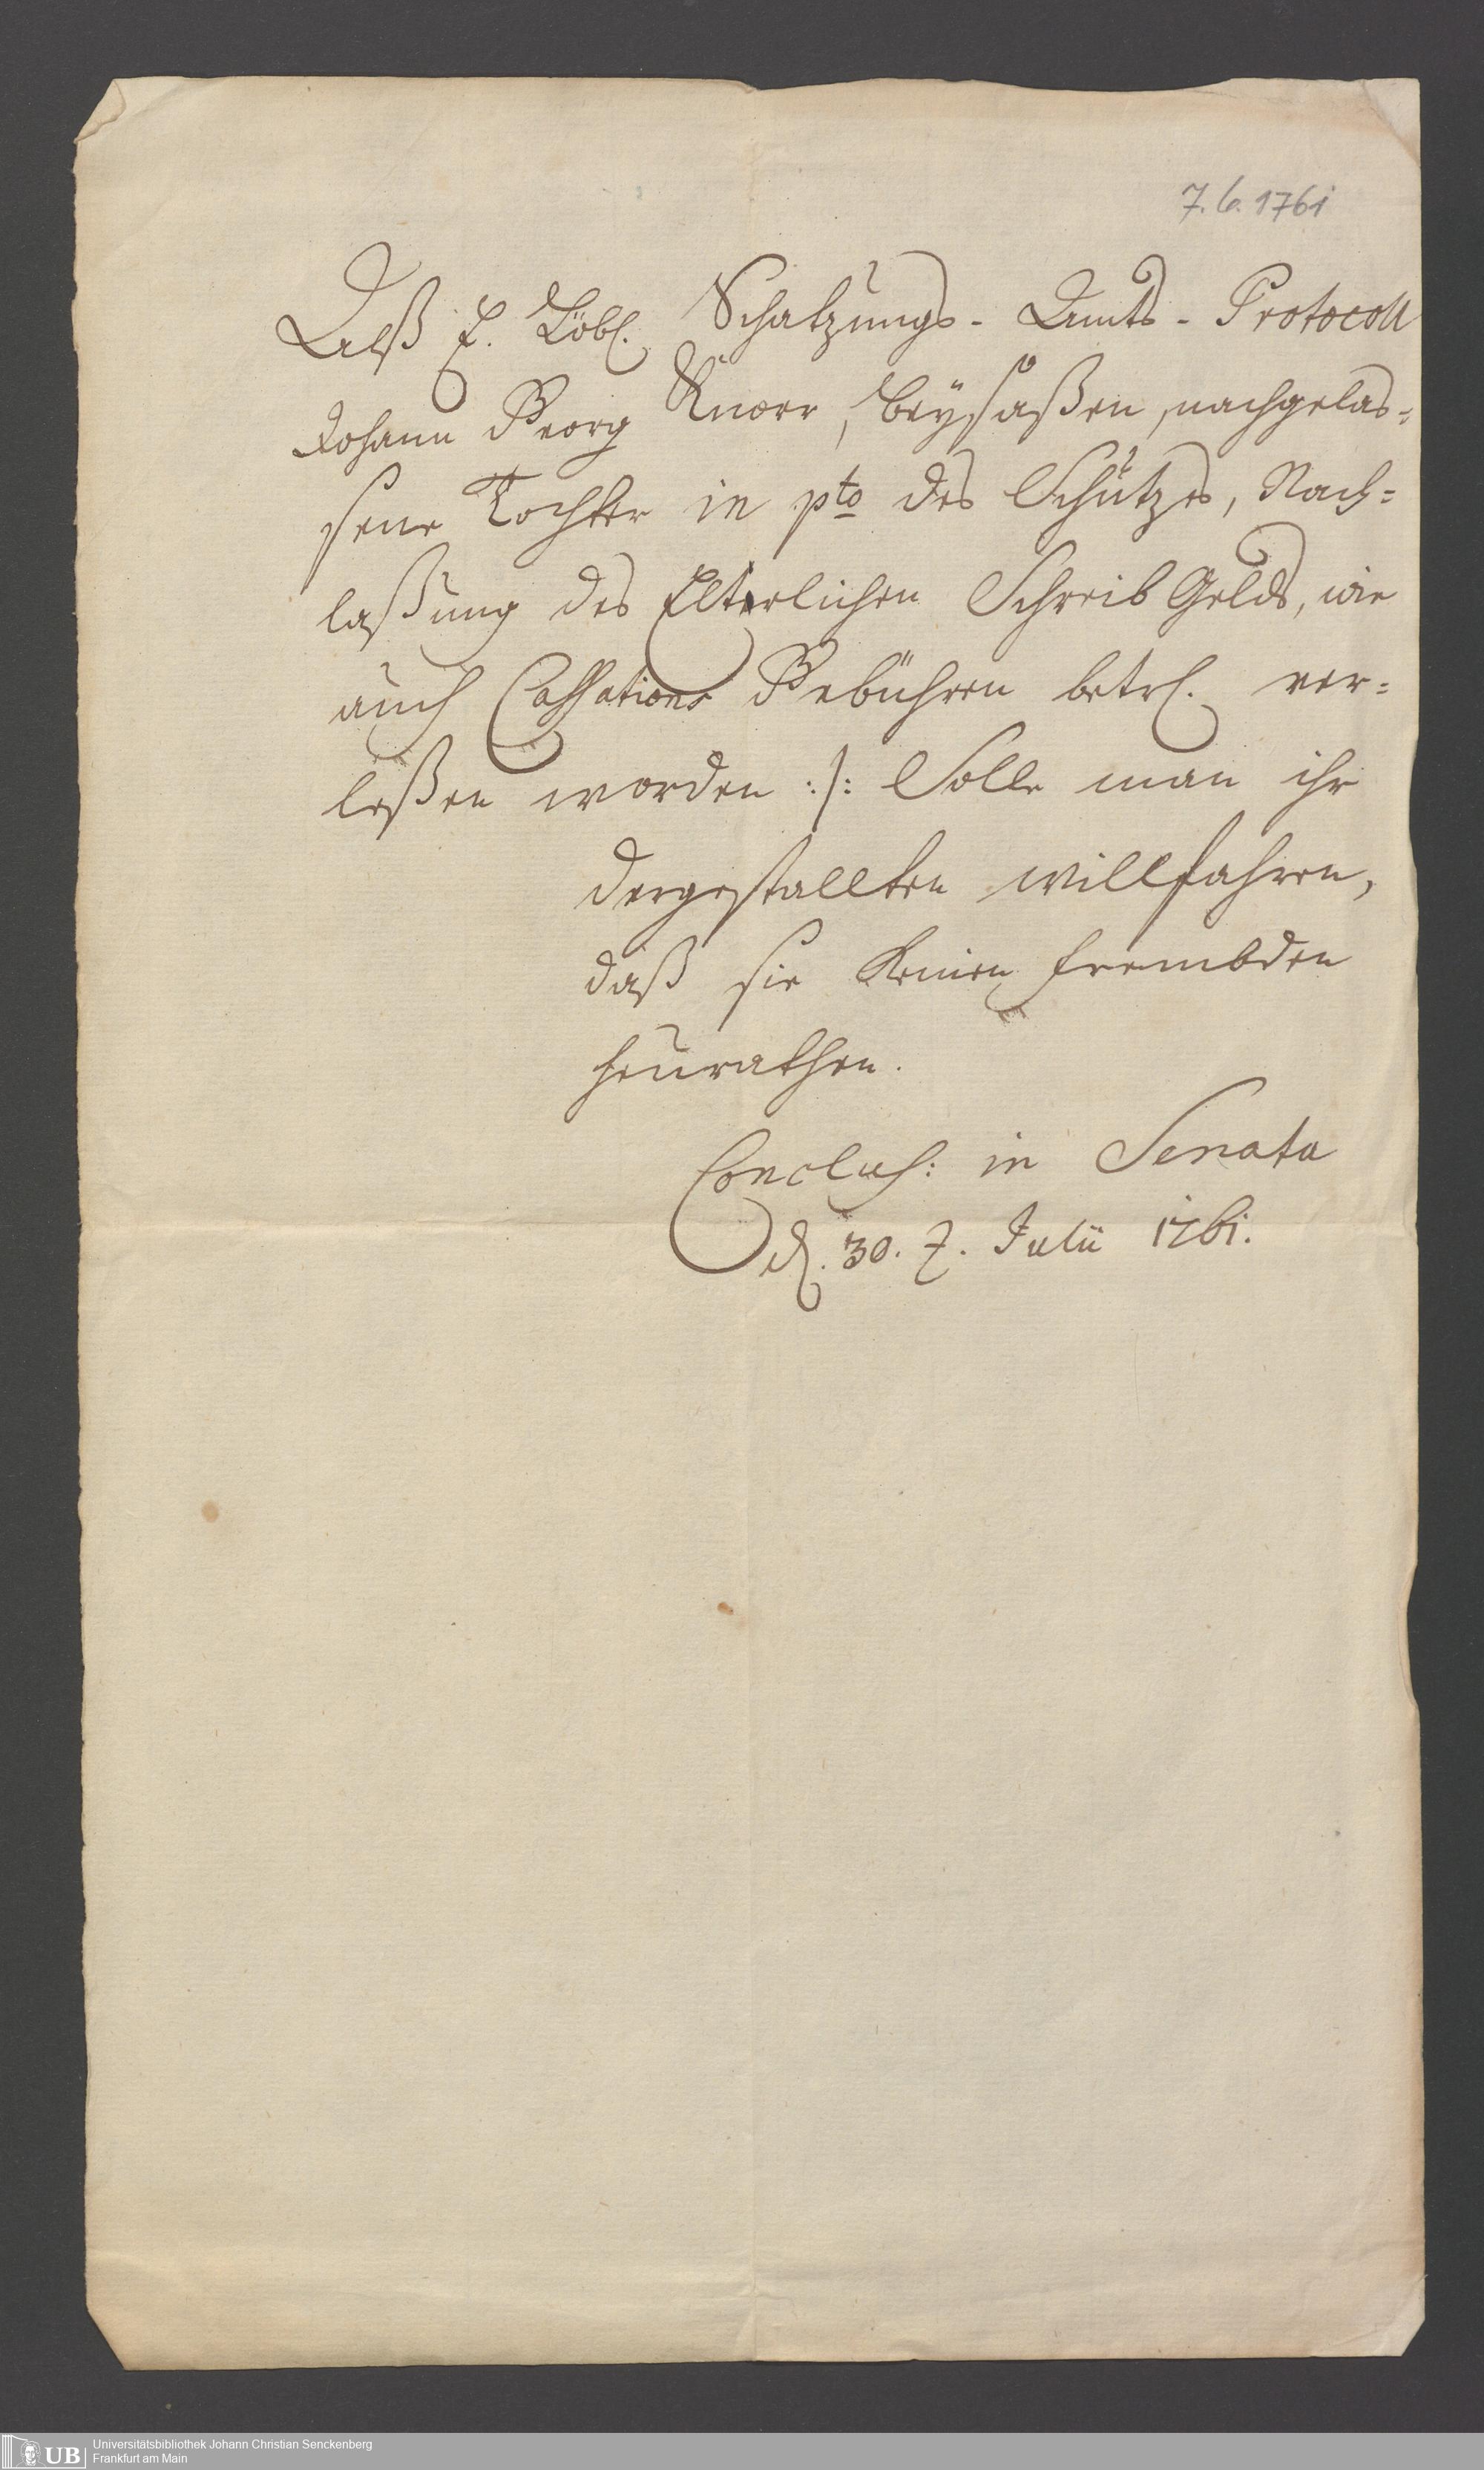 7. 6. 1761
Alß E. Löbl. Schatzungs- Amts- Protocoll
Johann Georg Knorr, Beysaßen, nachgelas=
sene Tochter in pto des Schutzes, Nach=
laßung des Elterlichen Schreib Gelds, wie
auch Cassations Gebühren betrl. ver=
leßen worden :/: Solle man ihr
dergestallten willfahren,
daß sie keinen frembden
heurathen.
Conclus: in Senatu
d. 30. Julii 1761.
Universitätsbibliothek Johann Christian Senckenberg
Frankfurt am Main
UB